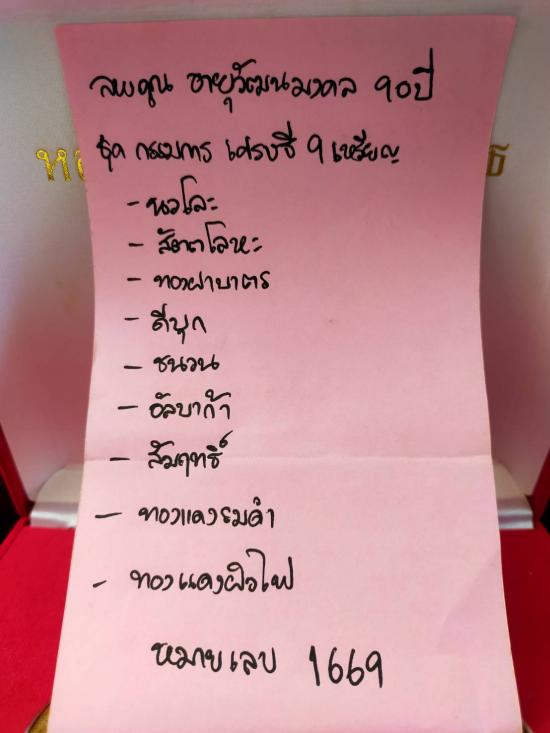 ลพคูณ อายุวัฒนมงคล 90ปี
ชุด กรรมการ เศรษฐี 9 เหรียญ
- นวโละ
- สัตตโลหะ
- ทองฝาบาตร
- ดีบุก
- ชนวน
- อัลปาก้า
- สัมฤทธิ์
- ทองแดงรมดำ
- ทองแดงผิวไฟ
หมายเลข 1669